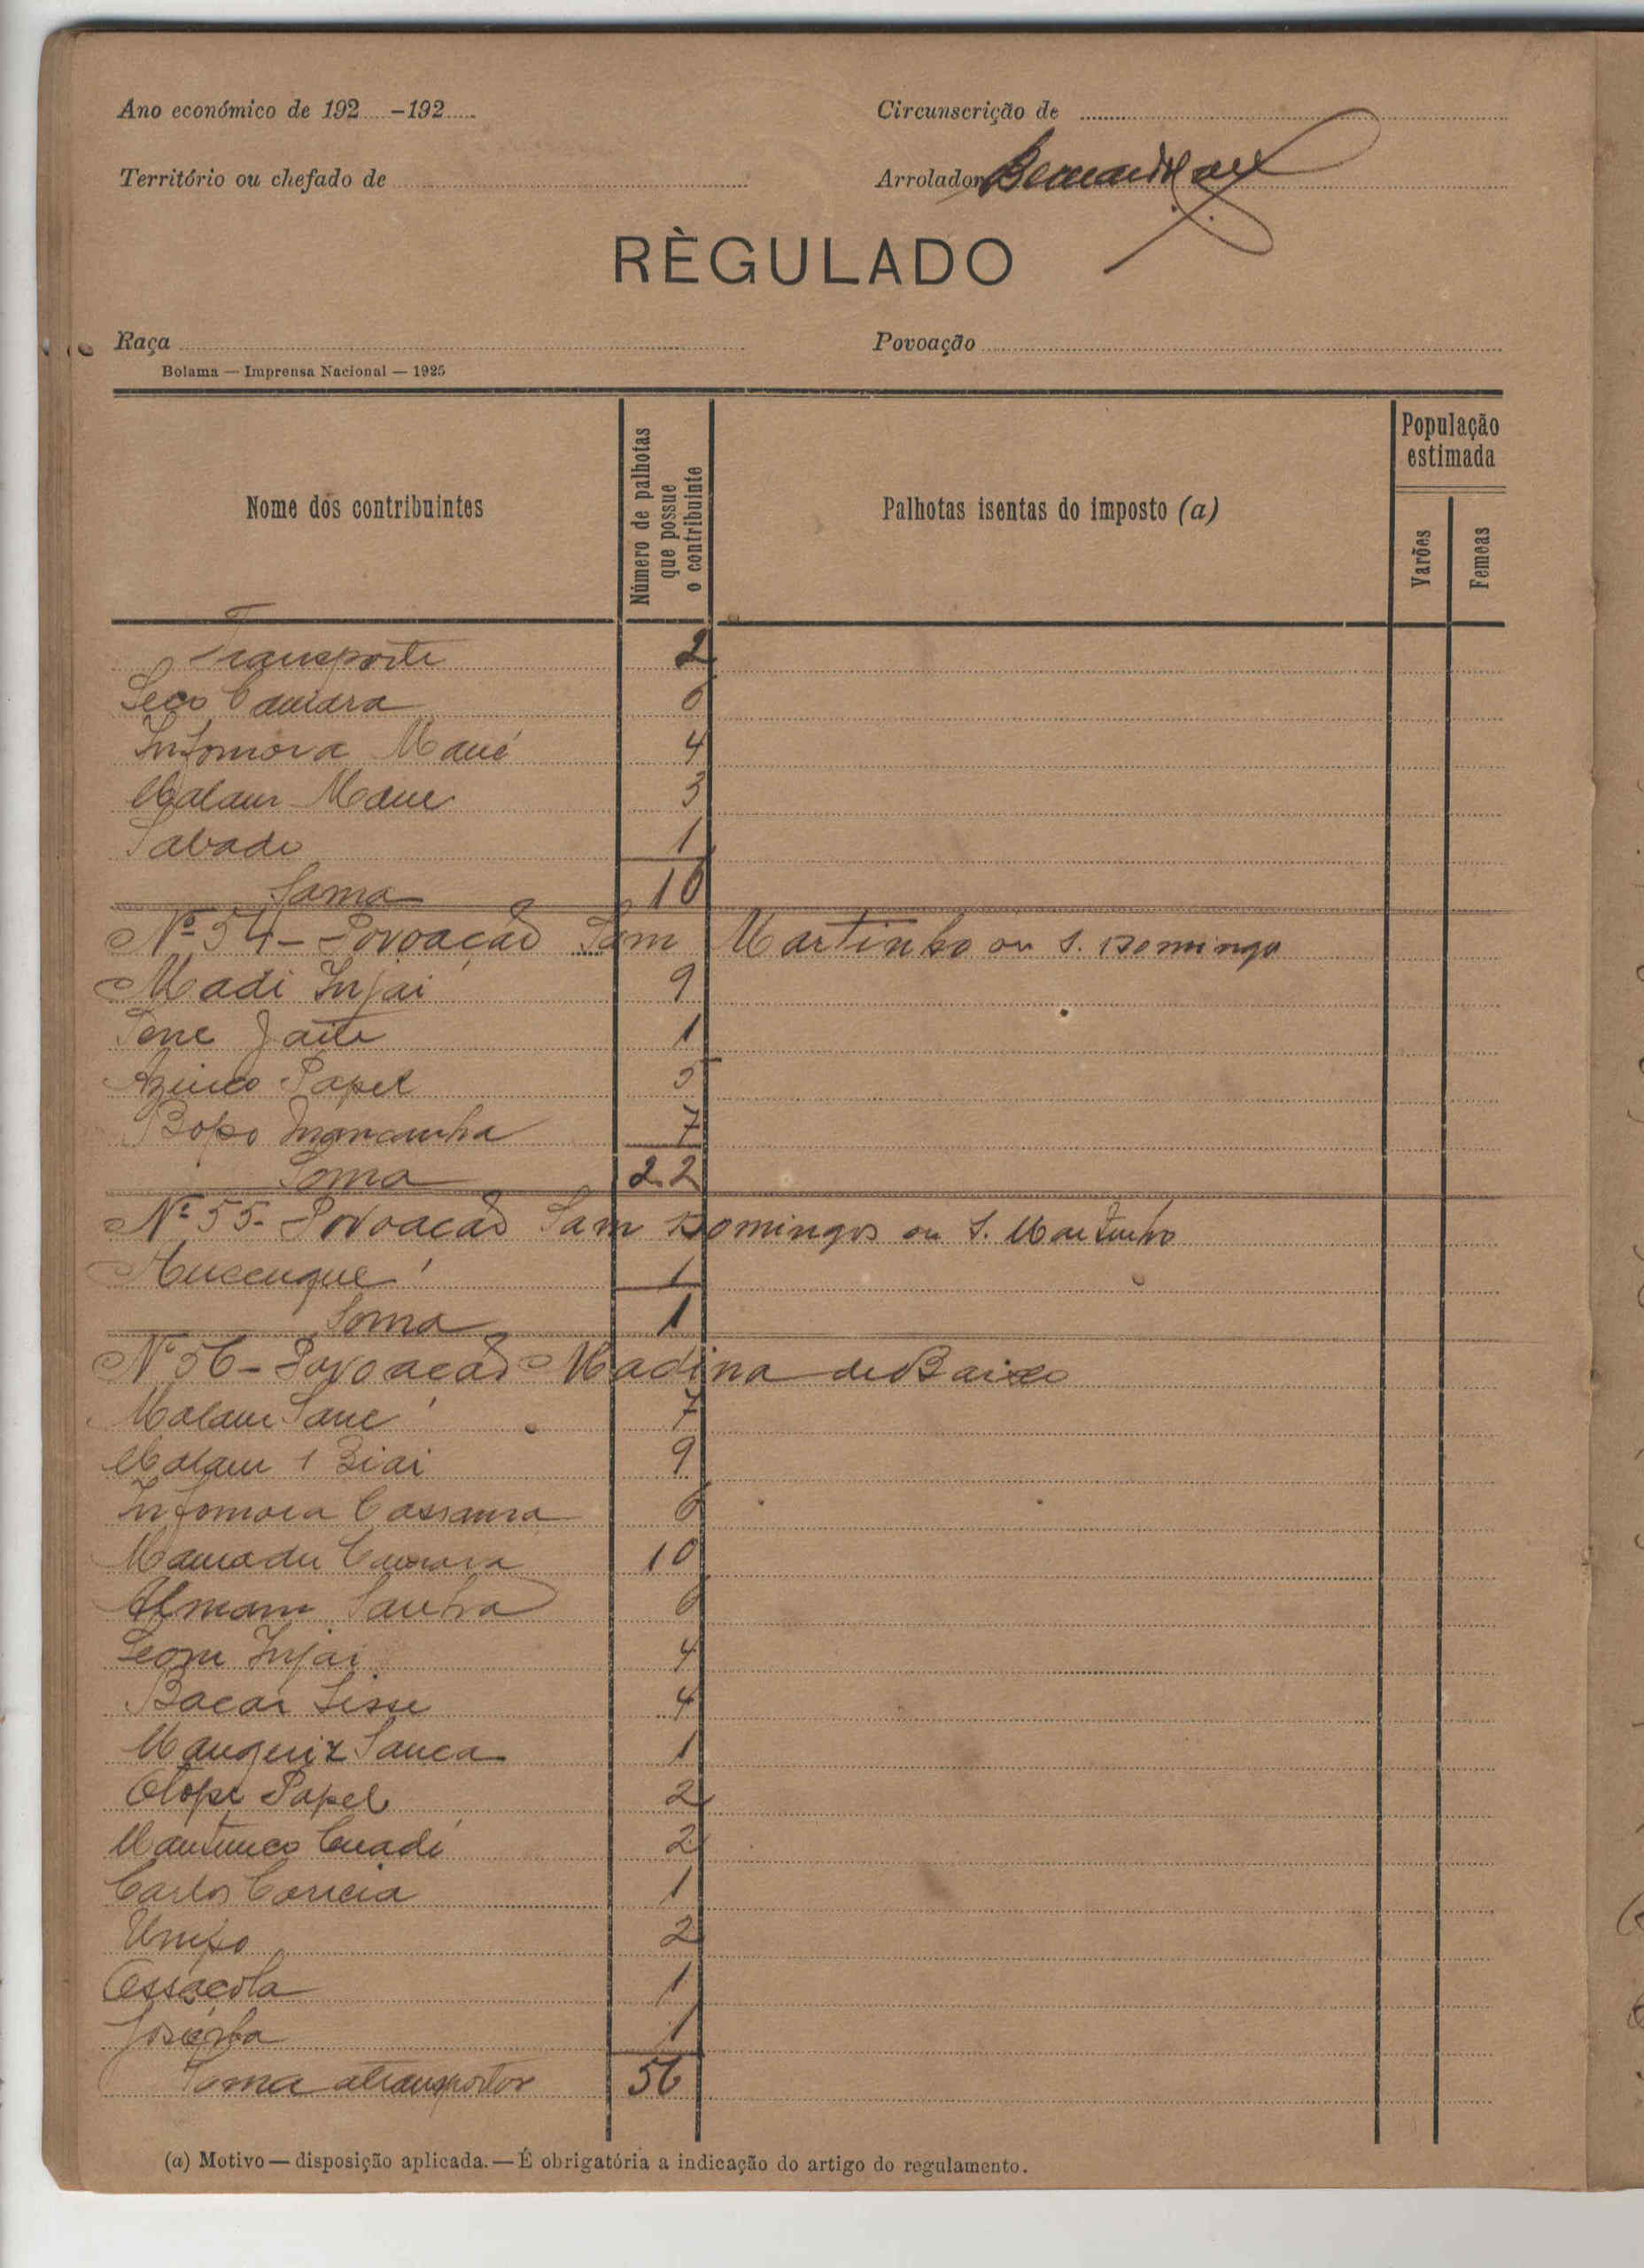 Ano económico de 192 -192
Circunscrição de
Território ou chefado de
Arrolador
RÈGULADO
Raça
Povoação
Bolama — Imprensa Nacional — 1925
Nome dos contribuintes
Número de palhotas que possue o contribuinte
Palhotas isentas do imposto (a)
População estimada
Varões
Femeas
Transporte 2
Seco Camara 6
Infomora Mané 4
Malam Mane 3
Sabado 1
Soma 16
Nº 54 - Povoação Sam Martinho ou S. Domingo
Madi Injai 9
1
Papel 5
Bopo Mancanha 7
Soma 22
Nº 55 - Povoação Sam Domingos ou S. Martinho
1
Soma 1
Nº 56 - Povoacão Madina de Baixo
Malam Sané 7
Malam 1 Biai 9
Infomora Cassama 6
Mamadu Camara 10
Almam Sanha 6
Injai 4
Bacar Sisse 4
Sanca 1
Otope Papel 2
2
Carlos Correia 1
Umpo 2
1
1
Soma a transportar 56
(a) Motivo — disposição aplicada. — É obrigatória a indicação do artigo do regulamento.